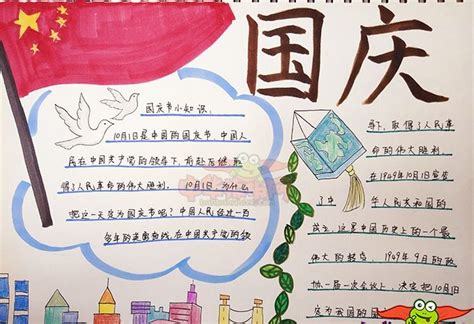 国庆
国庆节小知识:
10月1日是中国的国庆节,中国人
民在中国共产党的领导下,前赴后继,取
得了人民革命的伟大胜利。10月1日为什么
把这一天定为国庆节呢?中国人民经过一百
多年的英勇奋战,在中国共产党的领
导下,取得了人民革
命的伟大胜利。
在1949年10月1日宣告
了中华人民共和国的
成立,这是中国历史上的一个最
伟大的转变。1949年9月的政
协一届一次会议上,决定把10月1日
定为我国的国